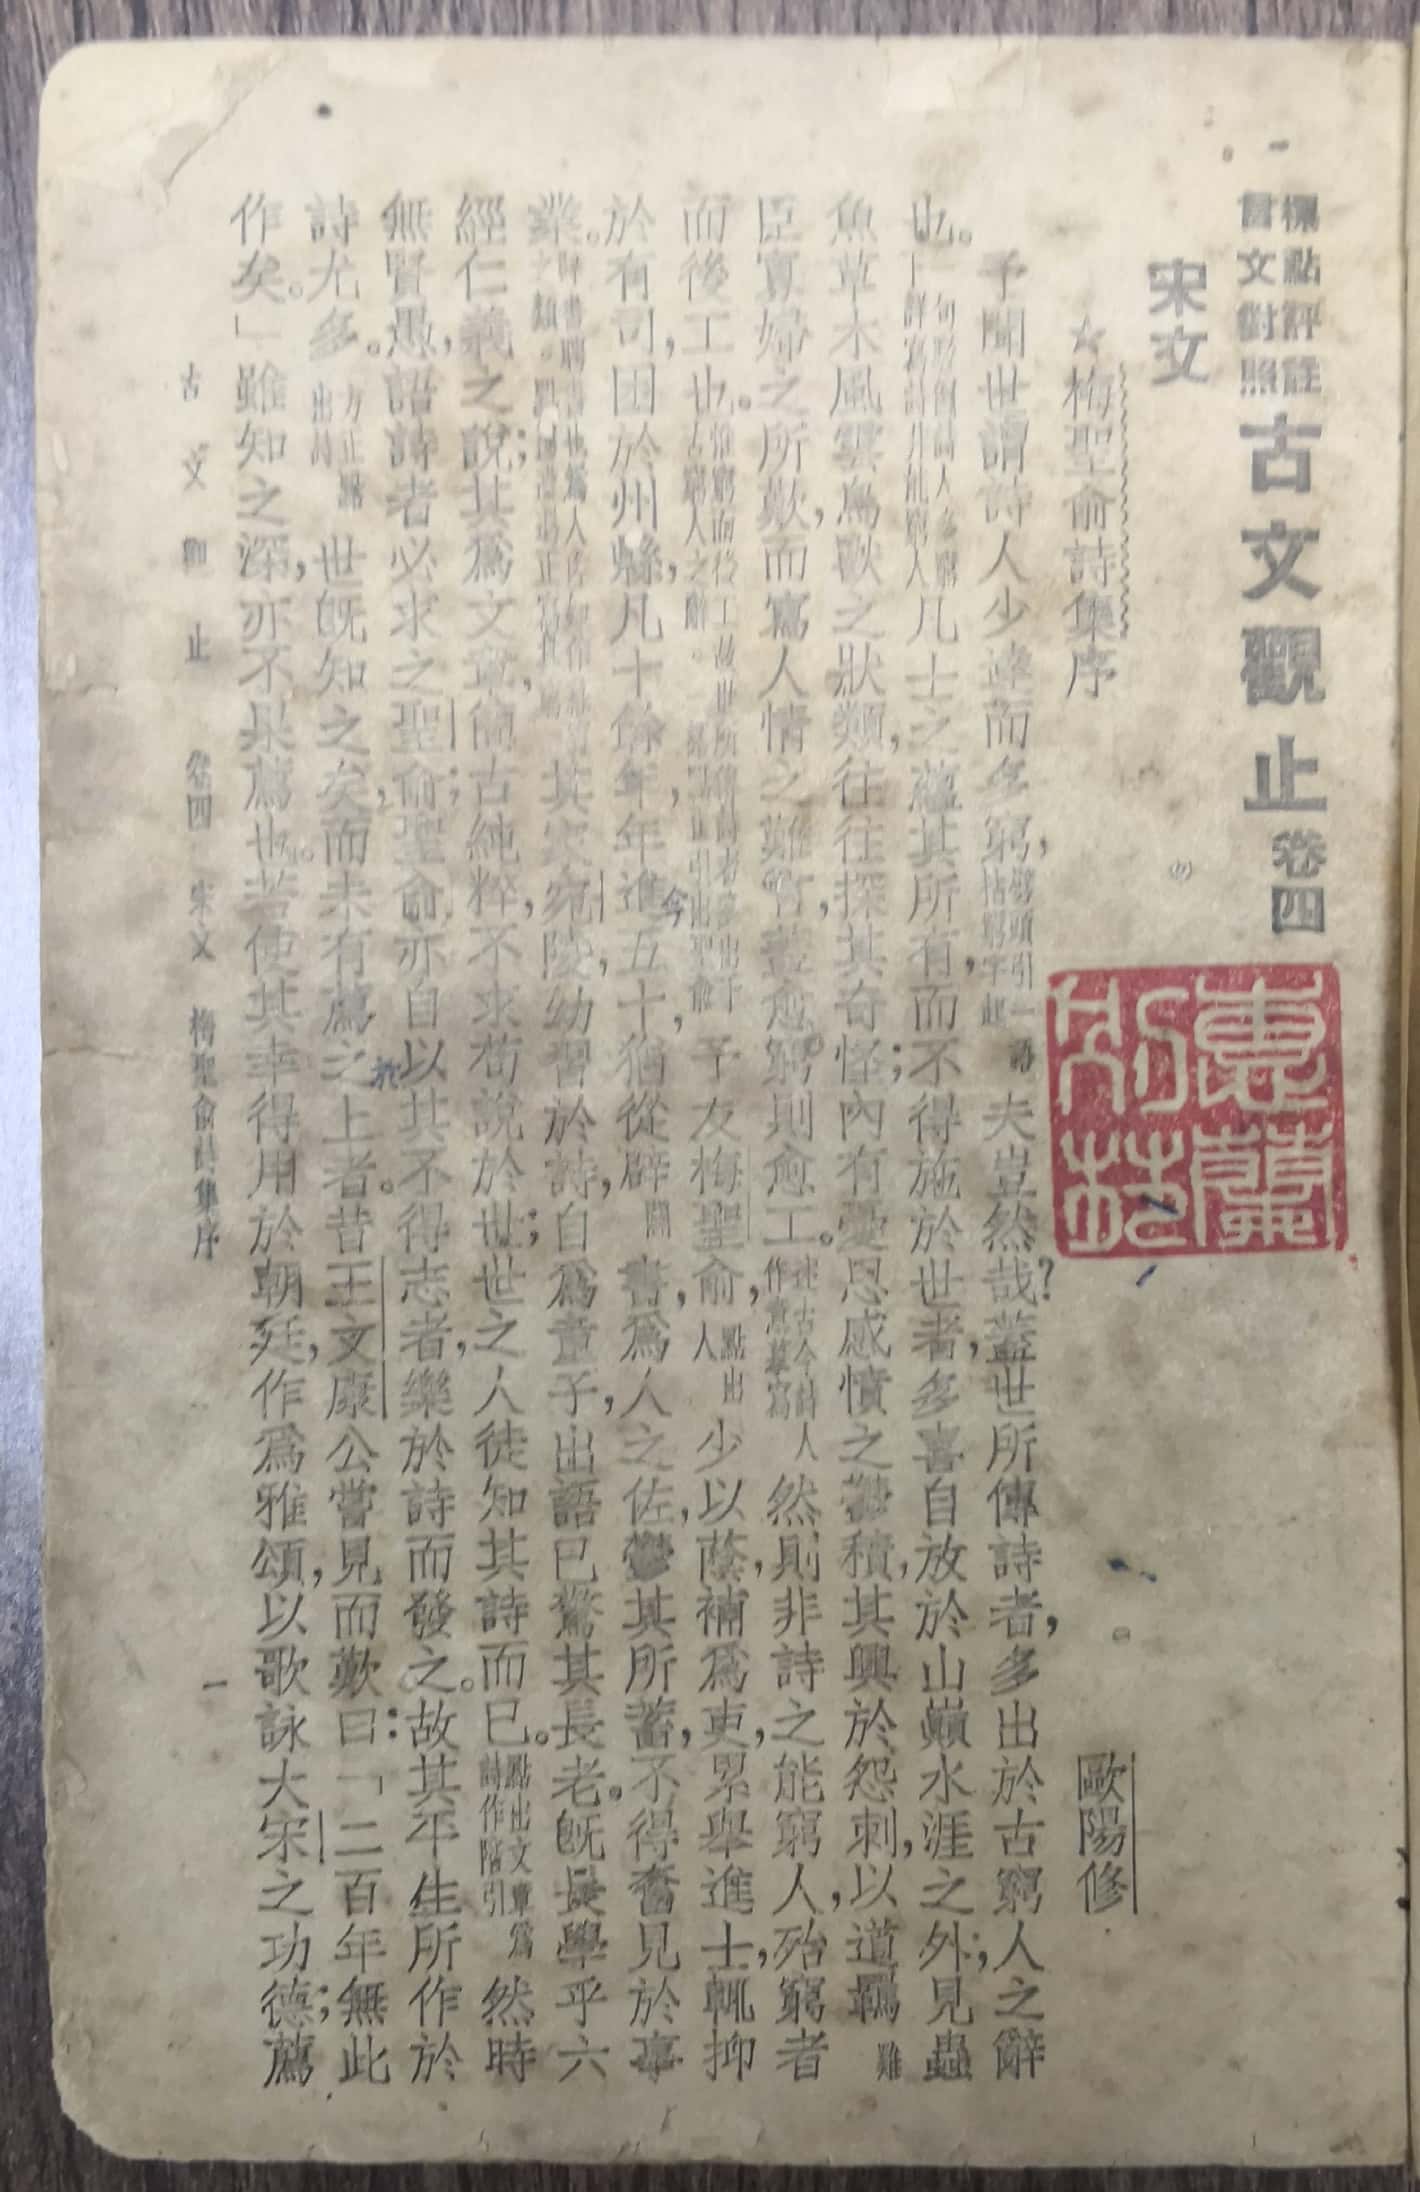 標點評註
言文對照
古文觀止卷四
宋文
☆梅聖俞詩集序
歐陽修
予聞世謂詩人少達而多窮，劈頭引一語拈窮字起夫豈然哉？蓋世所傳詩者，多出於古窮人之辭
也。凡士之蘊其所有，而不得施於世者，多喜自放於山巔水涯之外；見蟲
魚草木風雲鳥獸之狀類，往往探其奇怪；內有憂思感憤之鬱積，其興於怨刺，以道羇
臣寡婦之所歎，而寫人情之難言，蓋愈窮則愈工。然則非詩之能窮人，殆窮者
而後工也。予友梅聖俞，點出人少以蔭補爲吏，累舉進士，輒抑
於有司，困於州縣，凡十餘年，年今進五十，猶從辟書，爲人之佐，鬱其所蓄，不得奮見於事
業。其家宛陵，幼習於詩，自爲童子，出語已驚其長老。旣長，學乎六
經仁義之說；其爲文章，簡古純粹，不求苟說於世；世之人徒知其詩而已。點出文章爲詩作陪引然時
無賢愚，語詩者必求之聖俞；聖俞亦自以其不得志者，樂於詩而發之。故其平生所作，於
詩尤多。世旣知之矣，而未有薦之於上者。昔王文康公嘗見而歎曰：「二百年無此
作矣。」雖知之深，亦不果薦也。若使其幸得用於朝廷，作爲雅頌，以歌詠大宋之功德；薦
古文觀止 卷四 宋文 梅聖俞詩集序
一